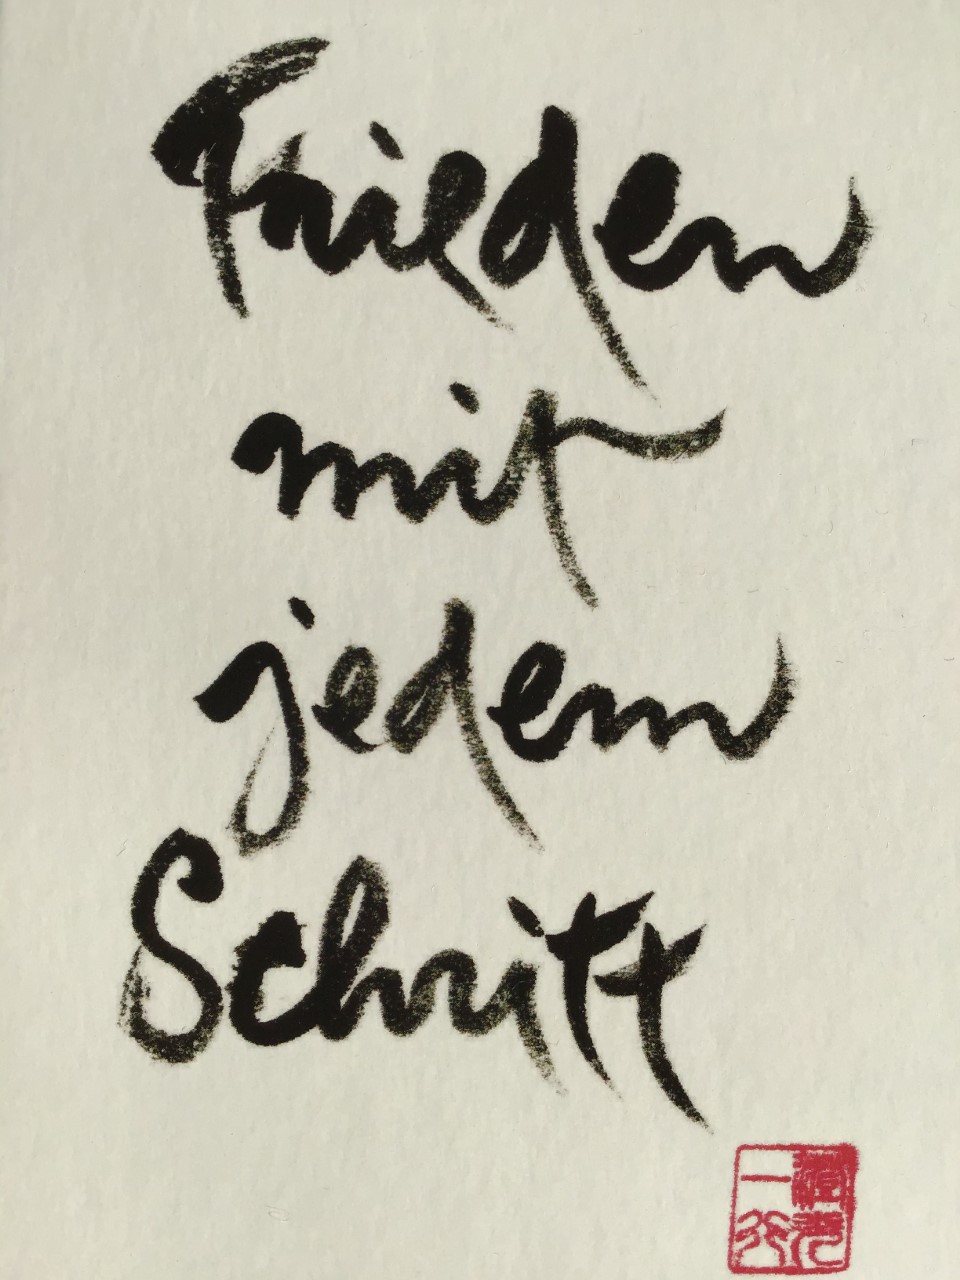 Frieden
mit
jedem
Schritt
澄光
一行